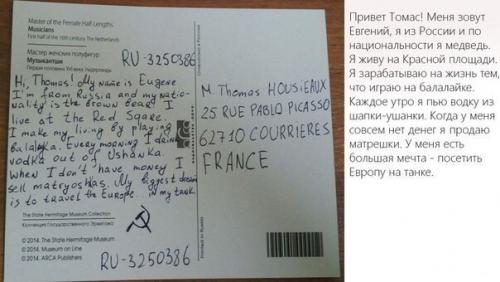 Master of the Female Half Lengths
Musicians
First half of the 16th century, The Netherlands
Мастер женских полуфигур
Музыкантши
Первая половина XVI века, Нидерланды
RU-3250386
Hi, Thomas! My name is Eugene
I'm from Russia and my natio-
nality is the brown bear. I
live at the Red Sqare.
I make my living by playing
balalayka. Every morning I drink
vodka out of ushanka.
When I don't have money I
sell matryoshkas. My biggest dream
is to travel the Europe... in my tank.
The State Hermitage Museum Collection
Коллекция Государственного Эрмитажа
© 2014. The State Hermitage Museum
© 2014. Museum on Line
© 2014. ARCA Publishers
RU-3250386
M. Thomas HOUSIEAUX
25 RUE PABLO PICASSO
62710 COURRIERES
FRANCE
Printed in Russia
Привет Томас! Меня зовут
Евгений, я из России и по
национальности я медведь.
Я живу на Красной площади.
Я зарабатываю на жизнь тем,
что играю на балалайке.
Каждое утро я пью водку из
шапки-ушанки. Когда у меня
совсем нет денег я продаю
матрешки. У меня есть
большая мечта - посетить
Европу на танке.